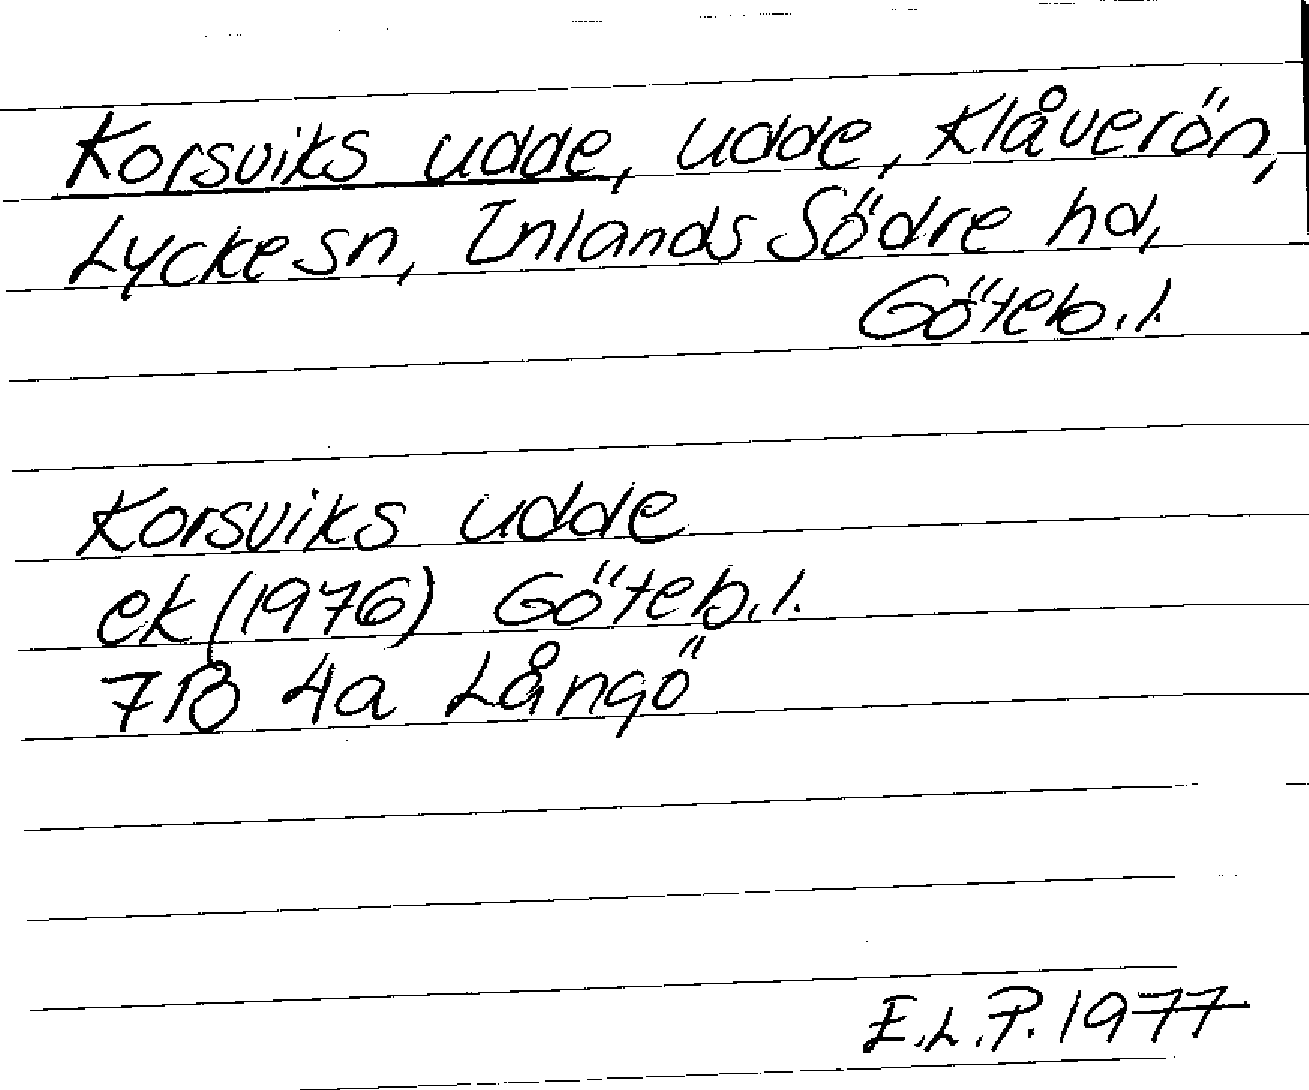 Korsviks udde, udde, Klåverön,
Lycke sn, Inlands Södre hd,
Göteb. l.
Korsviks udde
ek (1976) Göteb. l.
7B 4a Långö
E.L.P. 1977